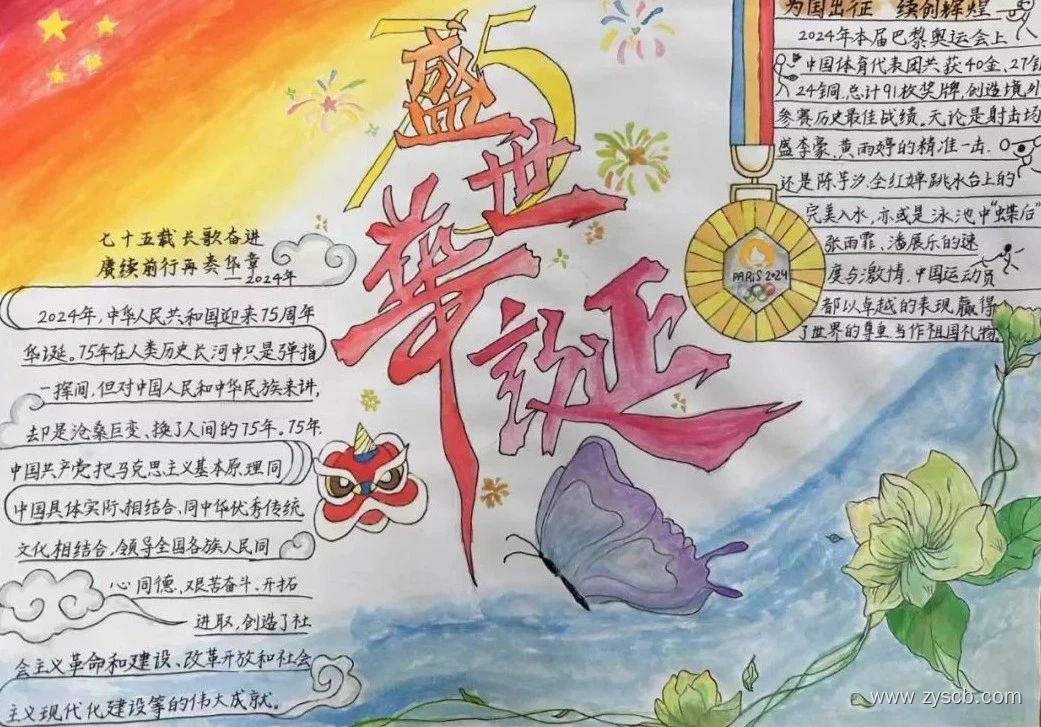 75
盛世華誕
七十五载长歌奋进
赓续前行再奏华章
——2024年
2024年,中华人民共和国迎来75周年
华诞。75年在人类历史长河中只是弹指
一挥间,但对中国人民和中华民族来讲,
却是沧桑巨变、换了人间的75年。75年,
中国共产党把马克思主义基本原理同
中国具体实际相结合,同中华优秀传统
文化相结合,领导全国各族人民同
心同德,艰苦奋斗、开拓
进取,创造了社
会主义革命和建设、改革开放和社会
主义现代化建设等的伟大成就。
为国出征 续创辉煌
2024年本届巴黎奥运会上
中国体育代表团共获40金、27银
24铜,总计91枚奖牌,创造境外
参赛历史最佳战绩。无论是射击场
盛李豪、黄雨婷的精准一击,
还是陈芋汐、全红婵跳水台上的
完美入水,亦或是泳池中“蝶后”
张雨霏、潘展乐的速
度与激情,中国运动员
都以卓越的表现赢得
了世界的尊重,当作祖国礼物
PARIS 2024
www.zyscb.com